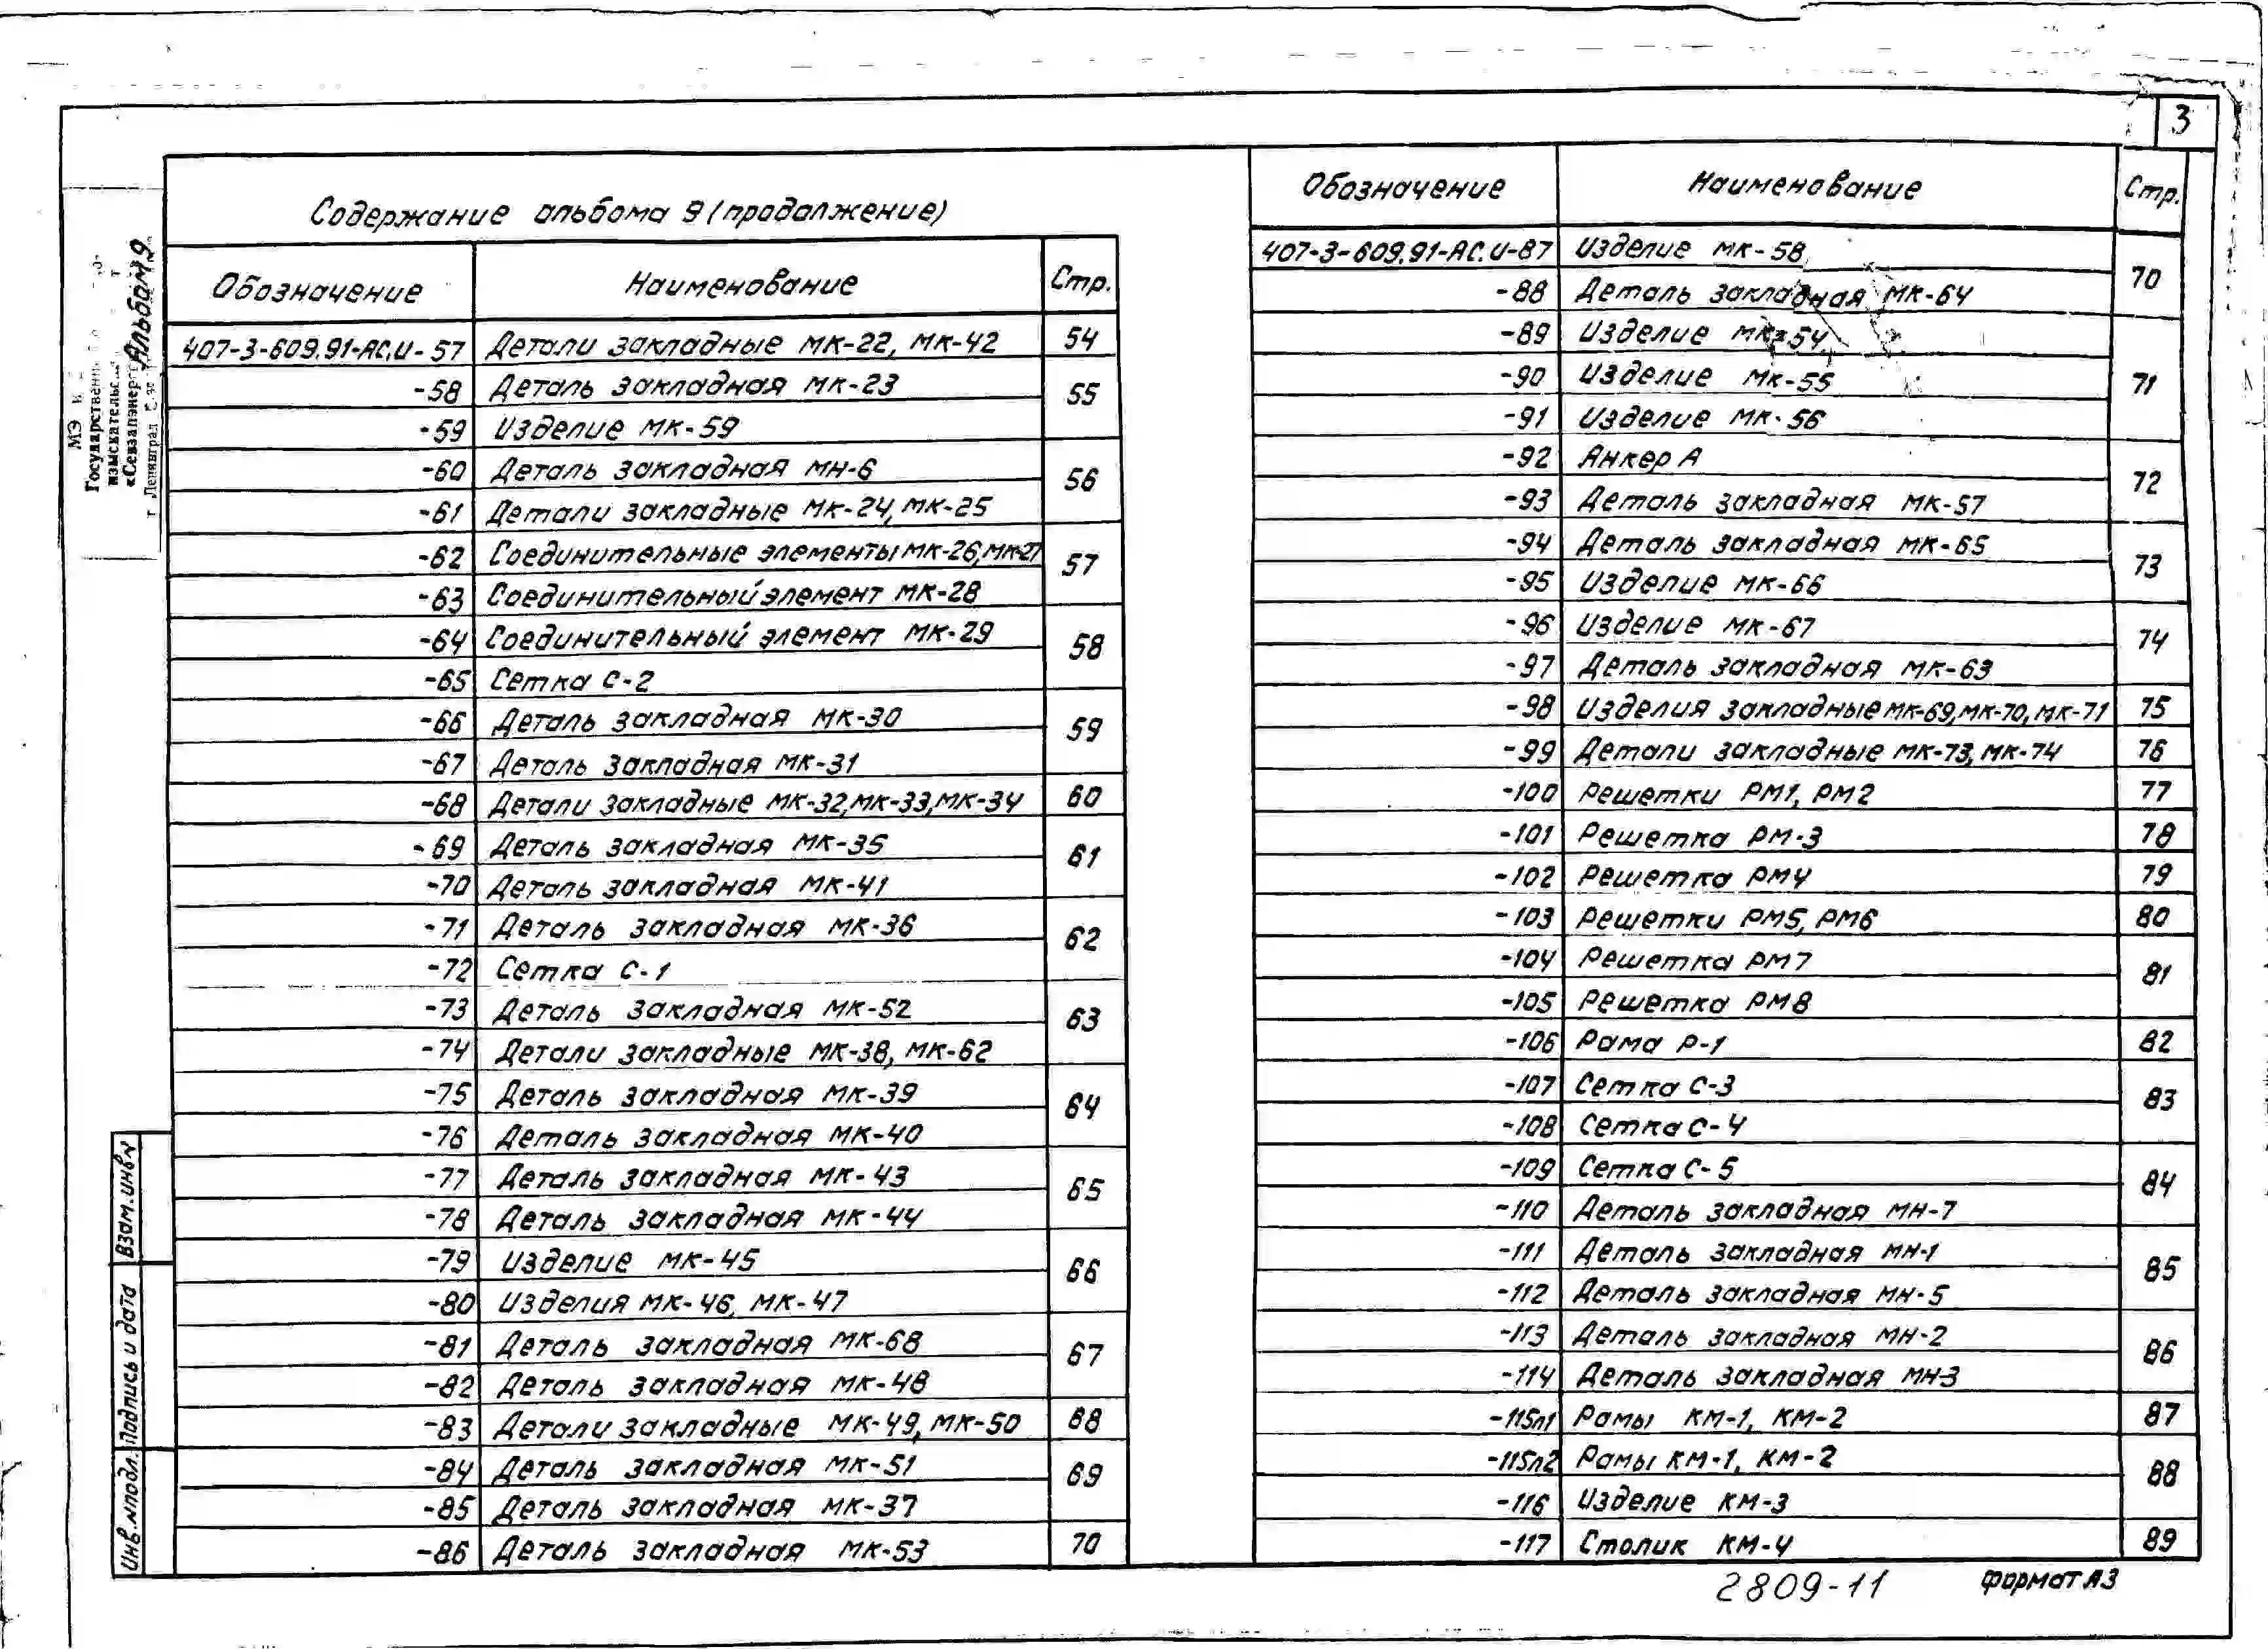 3
Содержание альбома 9 (продолжение)
Обозначение Наименование Стр.
407-3-609.91-АС.И-57 Детали закладные МК-22, МК-42 54
-58 Деталь закладная МК-23 55
-59 Изделие МК-59
-60 Деталь закладная МН-6 56
-61 Детали закладные МК-24, МК-25
-62 Соединительные элементы МК-26, МК-27 57
-63 Соединительный элемент МК-28
-64 Соединительный элемент МК-29 58
-65 Сетка С-2
-66 Деталь закладная МК-30 59
-67 Деталь закладная МК-31
-68 Детали закладные МК-32, МК-33, МК-34 60
-69 Деталь закладная МК-35 61
-70 Деталь закладная МК-41
-71 Деталь закладная МК-36 62
-72 Сетка С-1
-73 Деталь закладная МК-52 63
-74 Детали закладные МК-38, МК-62
-75 Деталь закладная МК-39 64
-76 Деталь закладная МК-40
-77 Деталь закладная МК-43 65
-78 Деталь закладная МК-44
-79 Изделие МК-45 66
-80 Изделия МК-46, МК-47
-81 Деталь закладная МК-68 67
-82 Деталь закладная МК-48
-83 Детали закладные МК-49, МК-50 68
-84 Деталь закладная МК-51 69
-85 Деталь закладная МК-37
-86 Деталь закладная МК-53 70
Обозначение Наименование Стр.
407-3-609.91-АС.И-87 Изделие МК-58 70
-88 Деталь закладная МК-64
-89 Изделие МК-54 71
-90 Изделие МК-55
-91 Изделие МК-56
-92 Анкер А 72
-93 Деталь закладная МК-57
-94 Деталь закладная МК-65 73
-95 Изделие МК-66
-96 Изделие МК-67 74
-97 Деталь закладная МК-63
-98 Изделия закладные МК-69, МК-70, МК-71 75
-99 Детали закладные МК-73, МК-74 76
-100 Решетки РМ1, РМ2 77
-101 Решетка РМ-3 78
-102 Решетка РМ4 79
-103 Решетки РМ5, РМ6 80
-104 Решетка РМ7 81
-105 Решетка РМ8
-106 Рама Р-1 82
-107 Сетка С-3 83
-108 Сетка С-4
-109 Сетка С-5 84
-110 Деталь закладная МН-7
-111 Деталь закладная МН-1 85
-112 Деталь закладная МН-5
-113 Деталь закладная МН-2 86
-114 Деталь закладная МН-3
-115л1 Рамы КМ-1, КМ-2 87
-115л2 Рамы КМ-1, КМ-2 88
-116 Изделие КМ-3
-117 Столик КМ-4 89
2809-11 Формат А3
Альбом 9
МЭ
Государственн
изыскательс
«Севзапэнерг
г Ленинград
Взам. инв N
Подпись и дата
Инв. N подл.